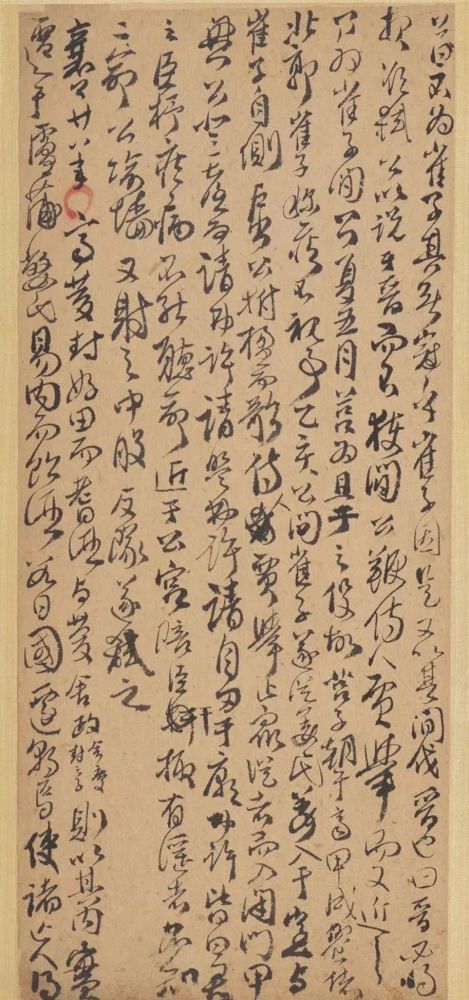 公曰不為崔子其無冠乎崔子因是又以其間伐晉也曰晉必將
報欲弒公以說于晉而不獲間公鞭侍人賈舉而又近之
乃為崔子間公夏五月莒為且于之役故莒子朝于齊甲戌饗諸
北郭崔子稱疾不視事乙亥公問崔子遂從姜氏姜入于室與
崔子自側戶出公拊楹而歌侍人賈舉止眾從者而入閉門甲
興公登臺而請弗許請盟弗許請自刃于廟弗許皆曰君
之臣杼疾病不能聽命近于公宮陪臣干掫有淫者不知
二命公踰牆又射之中股反隊遂弒之
襄公廿八年齊慶封好田而耆酒與慶舍政舍慶封子則以其內實
遷于盧蒲嫳氏易內而飲酒數日國遷朝焉使諸亡人得